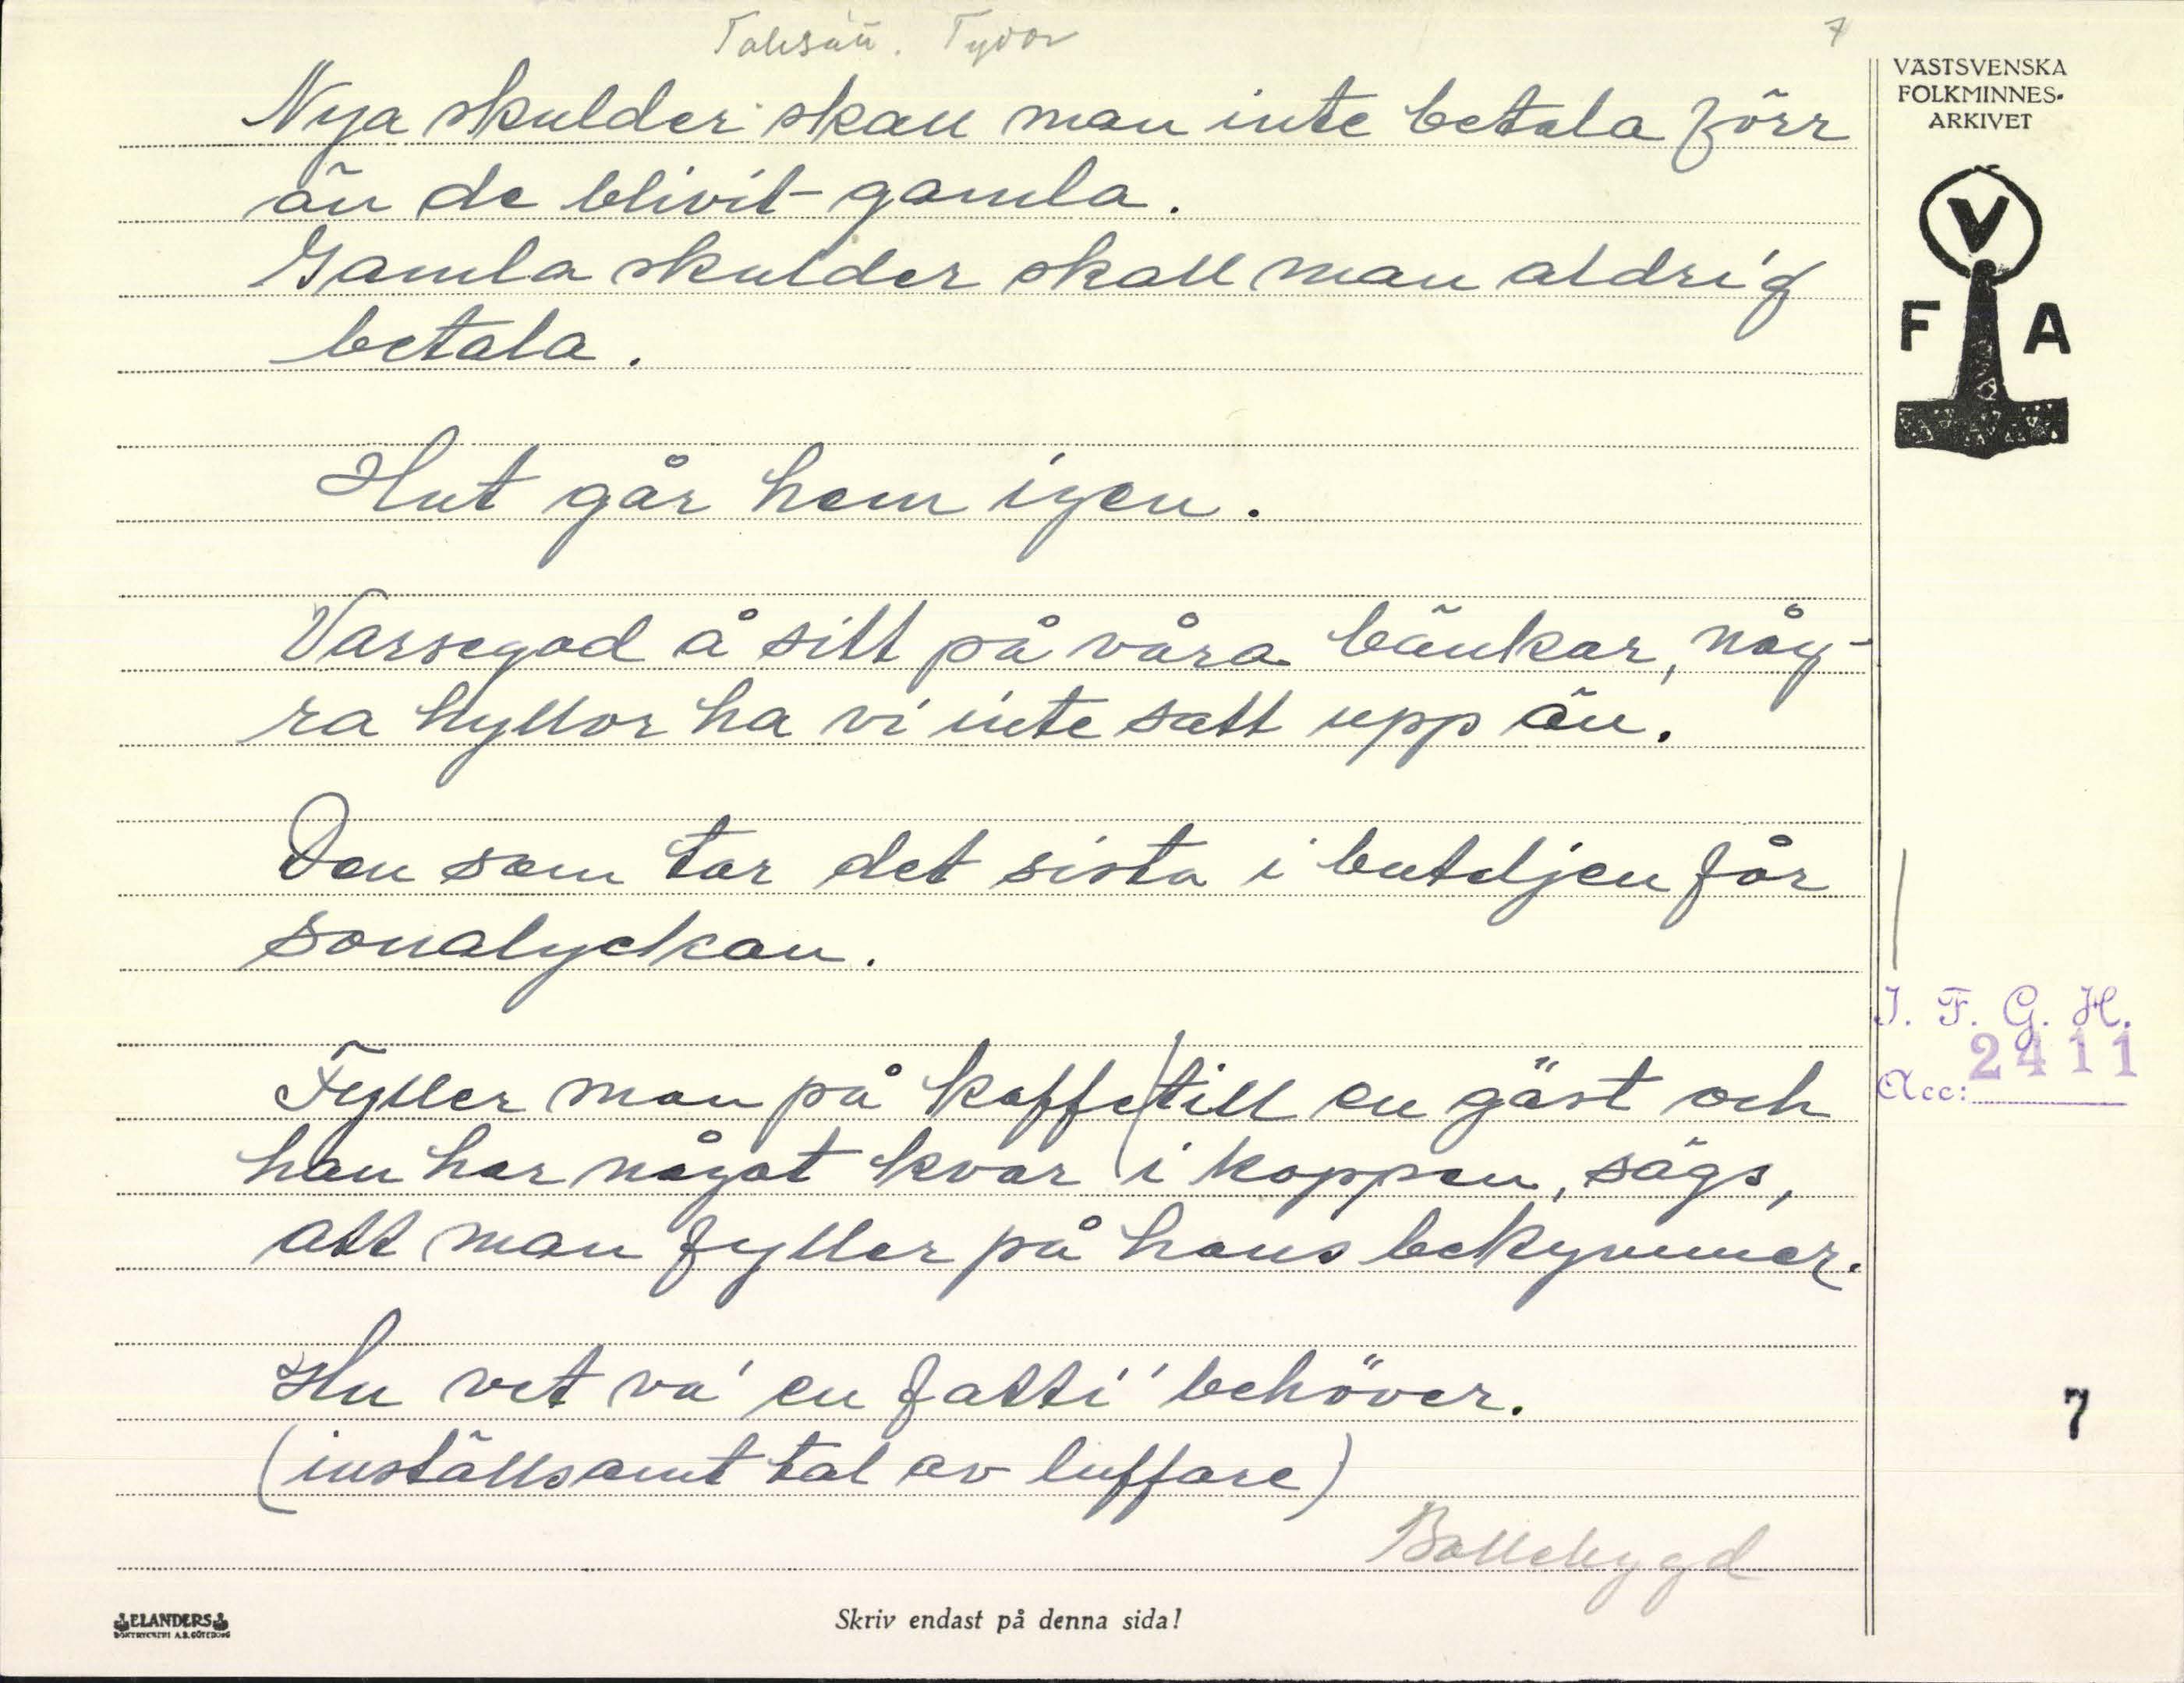 Talesätt. Tydor
7
VÄSTSVENSKA
FOLKMINNES-
ARKIVET
V
F A
Nya skulder skall man inte betala förr
än de blivit gamla.
Gamla skulder skall man aldrig
betala.
Hut går hem igen.
Varsegod å sitt på våra bänkar, någ-
ra hyllor ha vi inte satt upp än.
Den som tar det sista i buteljen får
sonalyckan.
Fyller man på kaffe till en gäst och
han har något kvar i koppen, sägs,
att man fyller på hans bekymmer.
Hu vet va' en fatti' behöver.
(inställsamt tal av luffare)
Bollebygd
I. F. G. H.
Acc: 2411
7
ELANDERS
BOKTRYCKERI A.B. GÖTEBORG
Skriv endast på denna sida!